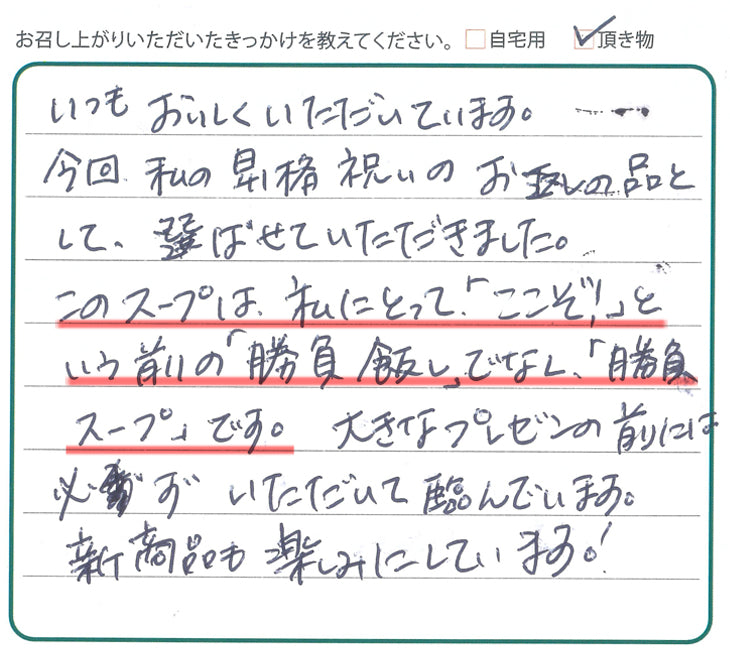 お召し上がりいただいたきっかけを教えてください。□自宅用 ☑頂き物
いつも おいしくいただいています。
今回 私の 昇格 祝いの お返しの品と
して、選ばせていただきました。
このスープは、私にとって、「ここぞ！」と
いう前の「勝負飯し」でなし、「勝負
スープ」です。 大きなプレゼンの前には
必ず いただいて 臨んでいます。
新商品も 楽しみにしています。！